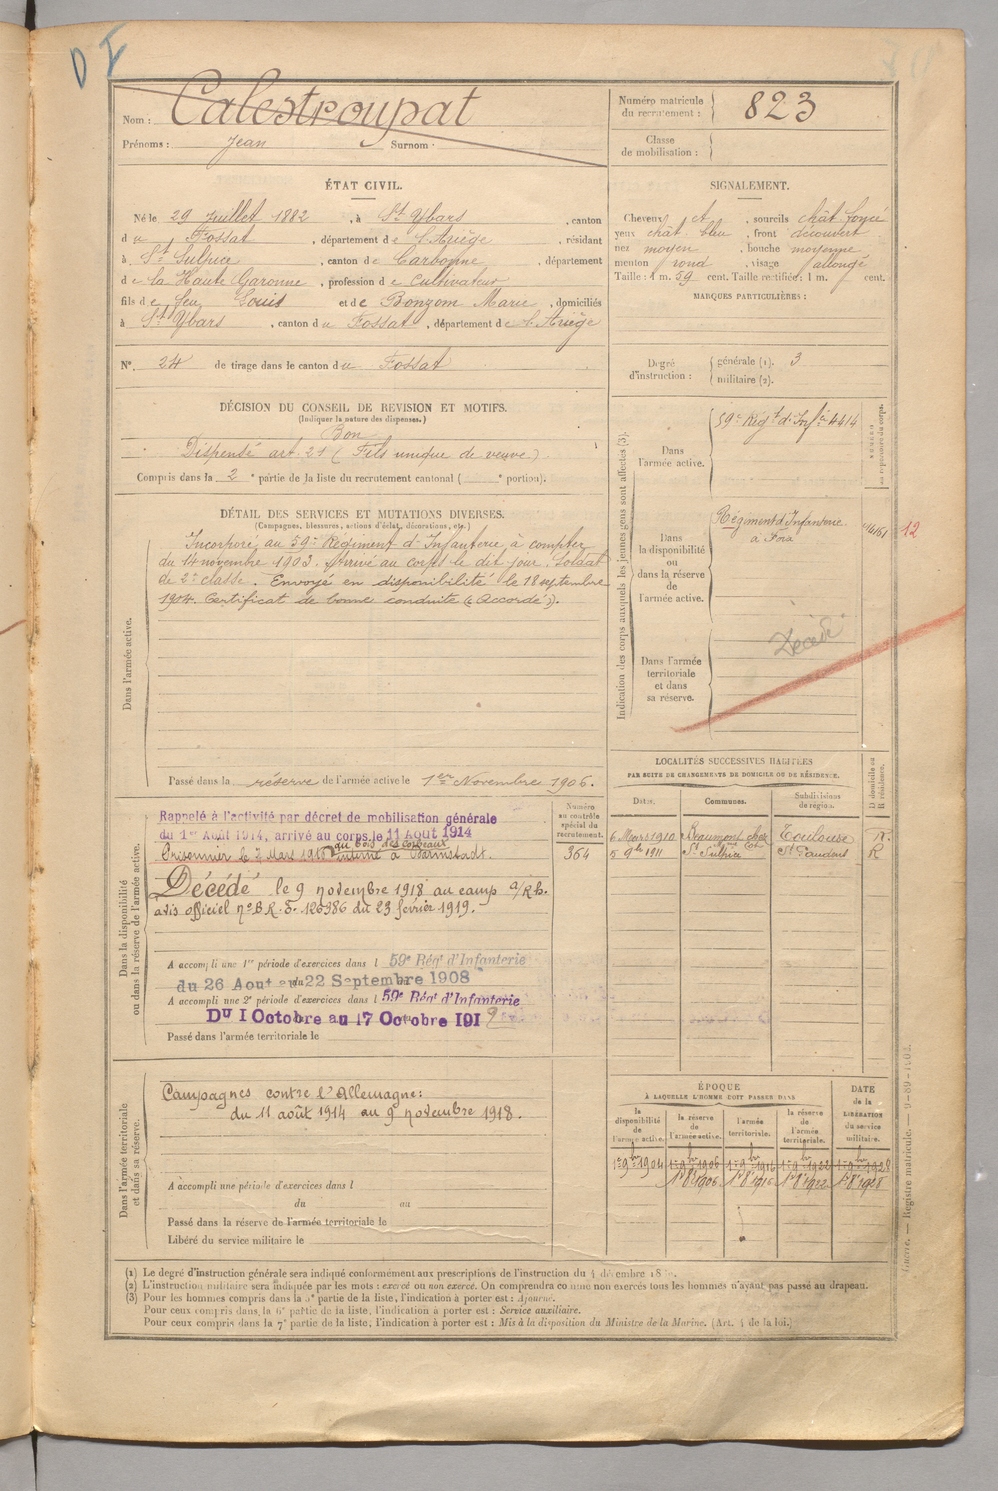 D F
Nom : Calestroupat
Prénoms : Jean Surnom :
Numéro matricule du recrutement : 823
Classe de mobilisation :
ÉTAT CIVIL.
Né le 29 Juillet 1882, à St Ybars, canton
du Fossat, département de l'Ariège, résidant
à St Sulpice, canton de Carbonne, département
de la Haute Garonne, profession de cultivateur
fils de feu Louis et de Bonzom Marie, domiciliés
à St Ybars, canton du Fossat, département de l'Ariège
N° 24 de tirage dans le canton du Fossat
SIGNALEMENT.
Cheveux et, sourcils chât foncé
yeux chât bleu, front découvert
nez moyen, bouche moyenne
menton rond, visage allongé
Taille : 1 m. 59 cent. Taille rectifiée : 1 m. cent.
MARQUES PARTICULIÈRES :
Degré d'instruction : générale (1). 3
militaire (2).
DÉCISION DU CONSEIL DE REVISION ET MOTIFS.
(Indiquer la nature des dispenses.)
Bon
Dispensé art. 21 (Fils unique de veuve).
Compris dans la 2e partie de la liste du recrutement cantonal ( e portion).
DÉTAIL DES SERVICES ET MUTATIONS DIVERSES.
(Campagnes, blessures, actions d'éclat, décorations, etc.)
Dans l'armée active.
Incorporé au 59e Régiment d'Infanterie à compter
du 14 novembre 1903. Arrivé au corps le dit jour. Soldat
de 2e classe. Envoyé en disponibilité le 18 septembre
1904. Certificat de bonne conduite (« Accordé »).
Passé dans la réserve de l'armée active le 1er Novembre 1906.
Indication des corps auxquels les jeunes gens sont affectés (3).
Dans l'armée active.
59e Régt d'Infie 4414
Dans la disponibilité ou dans la réserve de l'armée active.
Régiment d'Infanterie
à Foix
12
Dans l'armée territoriale et dans sa réserve.
Décédé
LOCALITÉS SUCCESSIVES HABITÉES
PAR SUITE DE CHANGEMENTS DE DOMICILE OU DE RÉSIDENCE.
Dates. Communes. Subdivisions de région. D domicile ou R résidence.
6 Mars 1910 Beaumont Toulouse R.
5 9bre 1911 St Sulpice St Gaudens R
Dans la disponibilité ou dans la réserve de l'armée active.
Numéro au contrôle spécial du recrutement.
364
Rappelé à l'activité par décret de mobilisation générale
du 1er Août 1914, arrivé au corps le 11 Août 1914
au bois des corbeaux
Prisonnier le 7 Mars 1916 interné à Darmstadt.
Décédé le 9 novembre 1918 au camp
avis officiel n° B.R. 5. 126986 du 23 février 1919.
A accompli une 1re période d'exercices dans l 59e Régt d'Infanterie
du 26 Aout au 22 Septembre 1908
A accompli une 2e période d'exercices dans l 59e Régt d'Infanterie
Du 1 Octobre au 17 Octobre 191
Passé dans l'armée territoriale le
Dans l'armée territoriale et dans sa réserve.
Campagnes contre l'Allemagne :
du 11 août 1914 au 9 novembre 1918.
A accompli une période d'exercices dans l
du au
Passé dans la réserve de l'armée territoriale le
Libéré du service militaire le
ÉPOQUE
À LAQUELLE L'HOMME DOIT PASSER DANS
DATE de la LIBÉRATION du service militaire.
la disponibilité de l'armée active. la réserve de l'armée active. l'armée territoriale. la réserve de l'armée territoriale.
1er 9bre 1904 1er 9bre 1906 1er 9bre 1916 1er 9bre 1922 1er 9bre 1928
1er 8bre 1906 1er 8bre 1916 1er 8bre 1922 1er 8bre 1928
(1) Le degré d'instruction générale sera indiqué conformément aux prescriptions de l'instruction du 4 décembre
(2) L'instruction militaire sera indiquée par les mots : exercé ou non exercé. On comprendra comme non exercés tous les hommes n'ayant pas passé au drapeau.
(3) Pour les hommes compris dans la 5e partie de la liste, l'indication à porter est : Ajourné.
Pour ceux compris dans la 6e partie de la liste, l'indication à porter est : Service auxiliaire.
Pour ceux compris dans la 7e partie de la liste, l'indication à porter est : Mis à la disposition du Ministre de la Marine. (Art. 4 de la loi.)
Registre matricule.